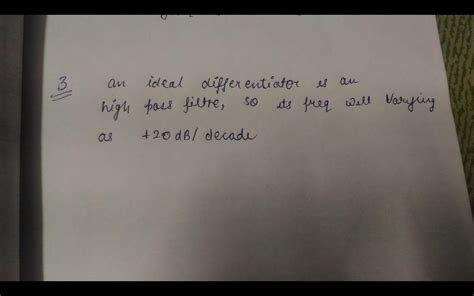 3 an ideal differentiator is an
high pass filtre, so its freq will varying
as +20 dB/decade